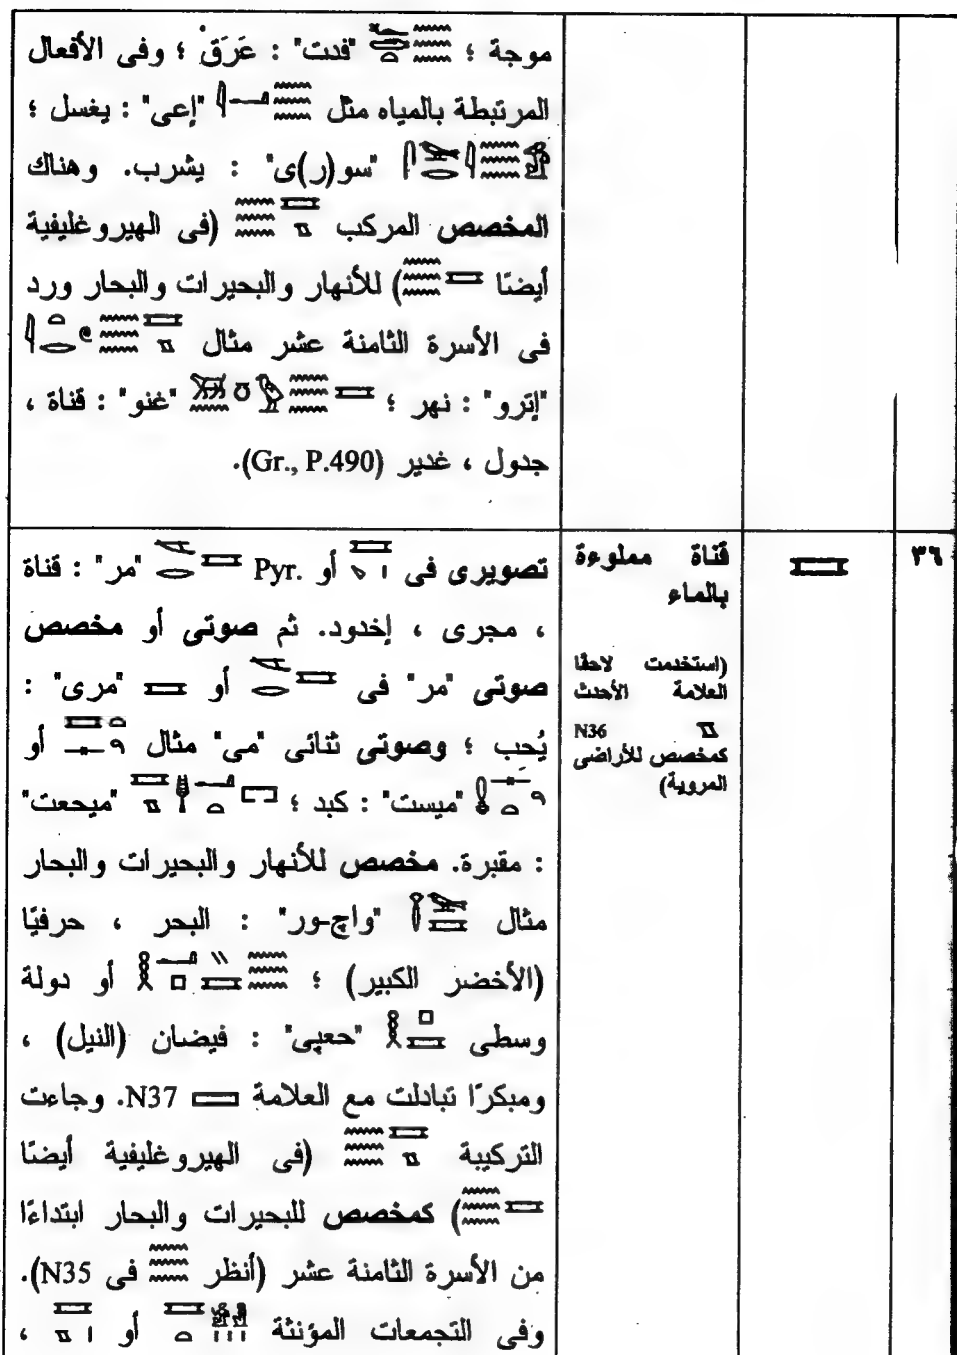 موجة ؛ "فدت" : عَرَق ؛ وفى الأفعال
المرتبطة بالمياه مثل "إعى" : يغسل ؛
"سو(ر)ى" : يشرب. وهناك
المخصص المركب (فى الهيروغليفية
أيضًا ) للأنهار والبحيرات والبحار ورد
فى الأسرة الثامنة عشر مثال
"إترو" : نهر ؛ "غنو" : قناة ،
جدول ، غدير (Gr., P.490).
٣٦
قناة مملوءة
بالماء
(استخدمت لاحقًا
العلامة الأحدث
N36
كمخصص للأراضى
المروية)
تصويرى فى أو Pyr. "مر" : قناة
، مجرى ، إخدود. ثم صوتى أو مخصص
صوتى "مر" فى أو "مرى" :
يُحب ؛ وصوتى ثنائى "مى" مثال أو
"ميست" : كبد ؛ "ميحعت"
: مقبرة. مخصص للأنهار والبحيرات والبحار
مثال "واچ-ور" : البحر ، حرفيًا
(الأخضر الكبير) ؛ أو دولة
وسطى "حعپى" : فيضان (النيل) ،
ومبكرًا تبادلت مع العلامة N37. وجاءت
التركيبة (فى الهيروغليفية أيضًا
) كمخصص للبحيرات والبحار ابتداءًا
من الأسرة الثامنة عشر (أنظر فى N35).
وفى التجمعات المؤنثة أو ،